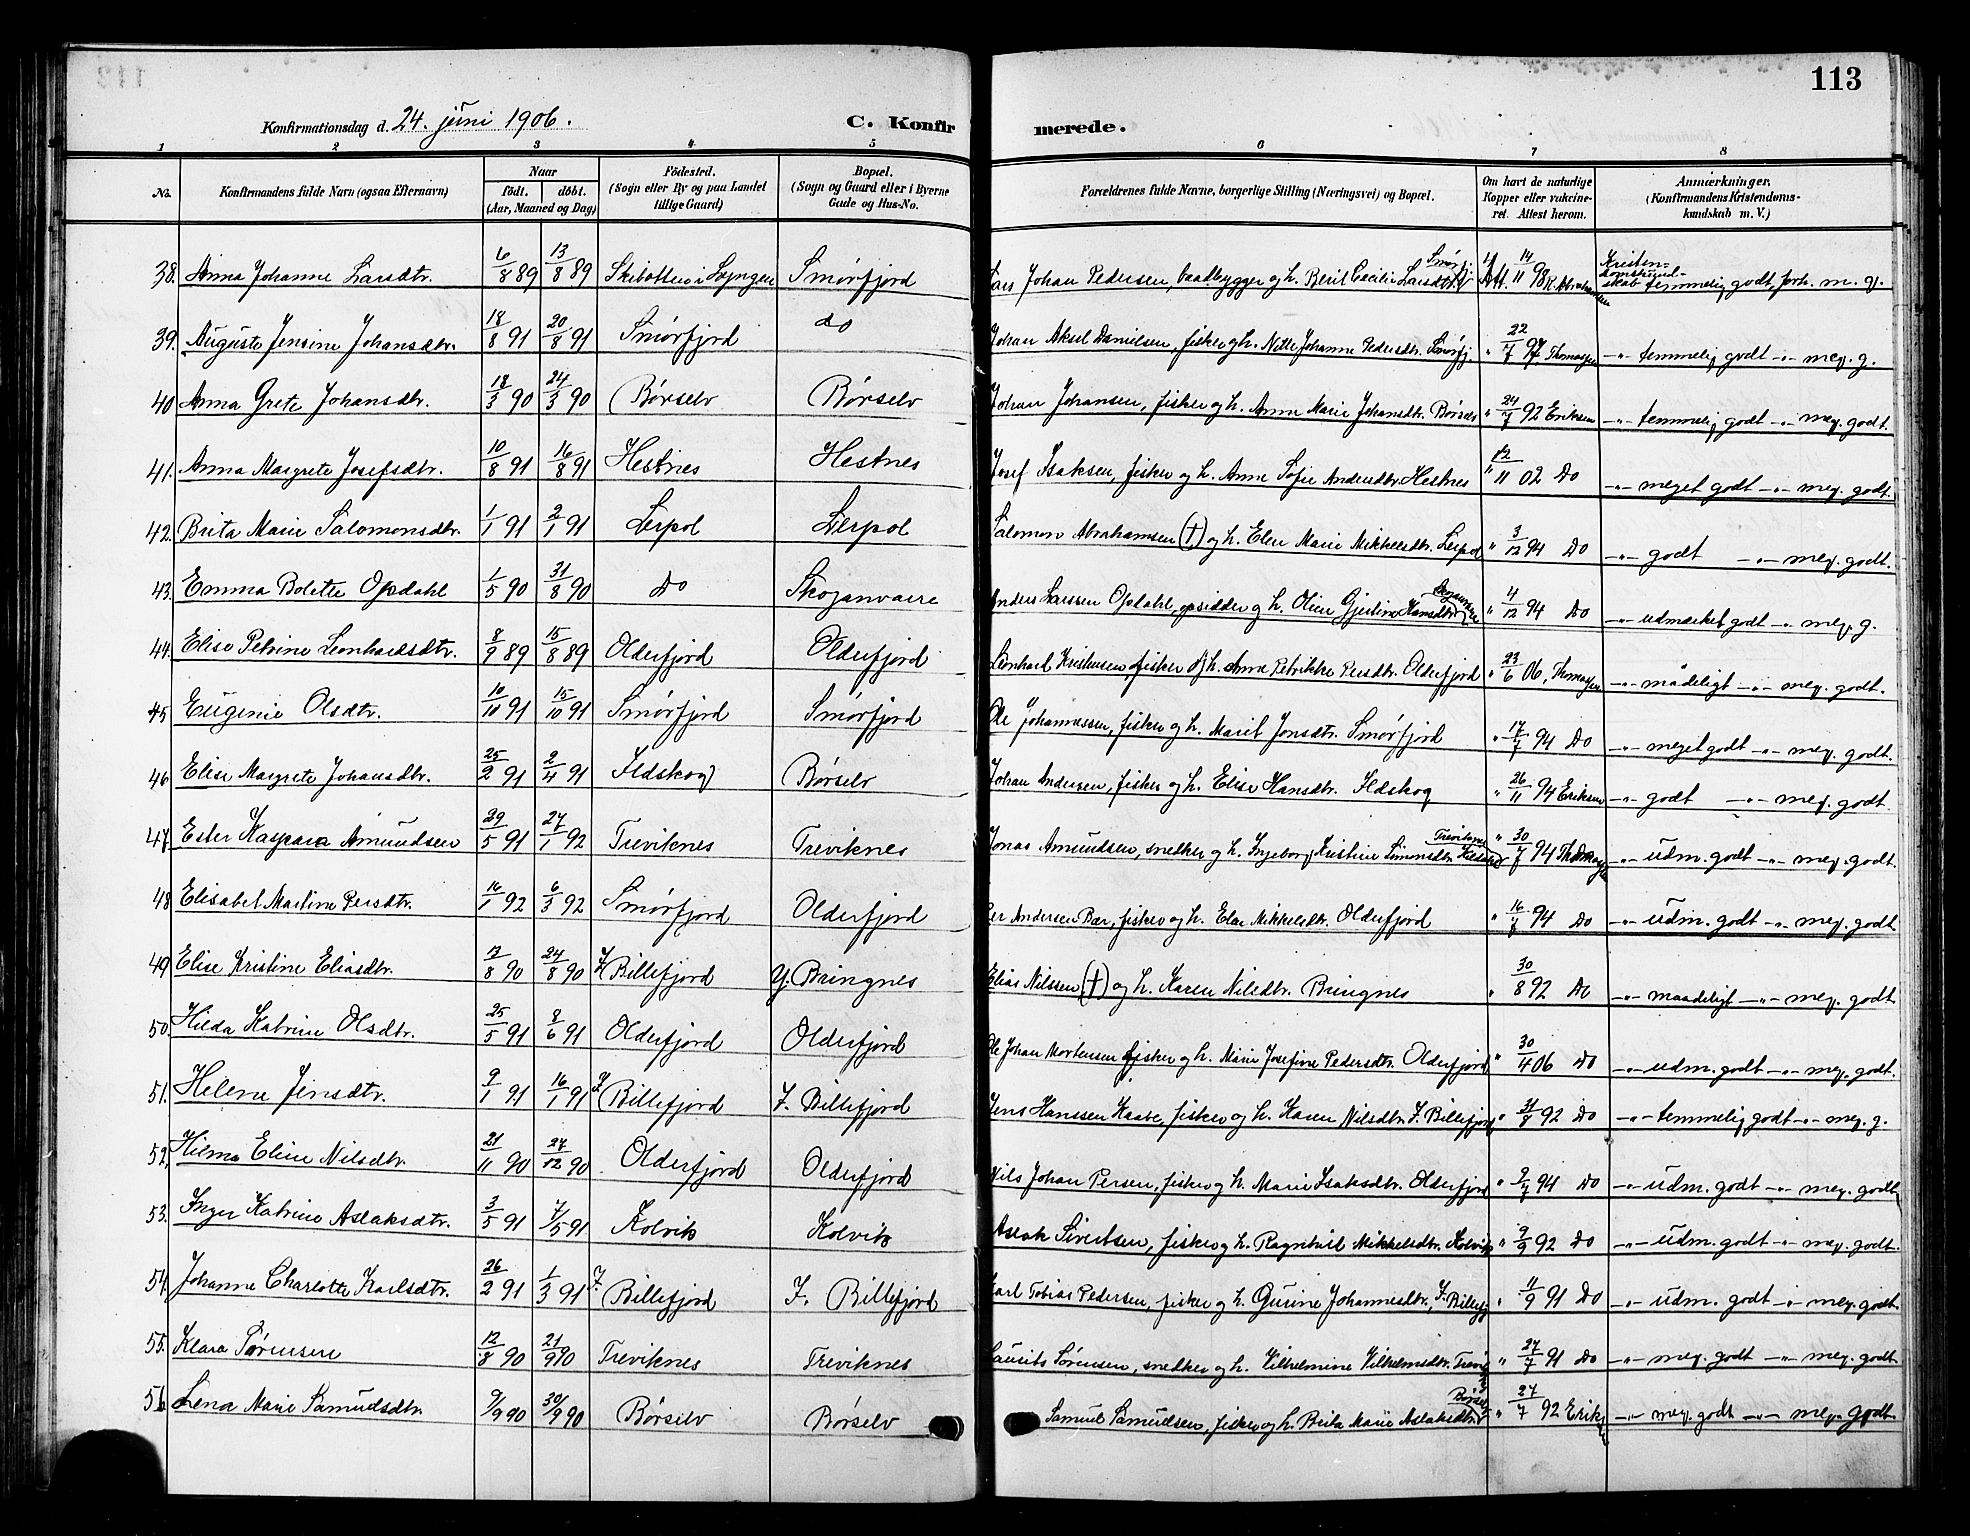 113
Konfirmationsdag d. 24. juni 1906.
C. Konfirmerede.
1 2 3 4 5 6 7 8
No. Konfirmandens fulde Navn (ogsaa Efternavn) Naar födt. döbt. (Aar, Maaned og Dag) Födested. (Sogn eller By og paa Landet tillige Gaard) Bopæl. (Sogn og Gaard eller i Byerne Gade og Hus-No. Forældrenes fulde Navne, borgerlige Stilling (Næringsvei) og Bopæl. Om havt de naturlige Kopper eller vakcineret. Attest herom. Anmærkninger. (Konfirmandens Kristendomskundskab m. V.)
38. Anna Johanne Larsdtr. 6/8 89 13/8 89 Skibotten i Lyngen Smørfjord Lars Johan Pedersen, baadbygger og h. Berit Cecilie Larsdtr. Smørfj. Att. 14/11 98 K. Abrahamsen Kristendomskundskab temmelig godt, forh. m. g.
39. Auguste Jensine Johansdtr. 18/8 91 20/8 91 Smørfjord do Johan Aksel Danielsen, fisker og h. Nille Johanne Pedersdtr. Smørfj. " 22/7 97 Thomassen -"- temmelig godt -"- meg. g.
40 Anna Grete Johansdtr. 18/3 90 24/3 90 Børselv Børselv Johan Johansen, fisker og h. Anne Marie Johansdtr. Børselv " 24/7 92 Eriksen -"- temmelig godt -"- meg. godt.
41. Anna Margrete Josefsdtr. 10/8 91 16/8 91 Hestnes Hestnes Josef Isaksen, fisker og h. Anne Sofie Andersdtr. Hestnes " 12/11 02 Do -"- meget godt -"- meg. godt.
42. Brita Marie Salomonsdtr. 1/1 91 2/1 91 Lerpol Lerpol Salomon Abrahamsen (†) og h. Elen Marie Mikkelsdtr. Lerpol " 3/12 94 Do -"- godt -"- meg. godt.
43. Emma Bolette Opdahl 1/5 90 31/8 90 Do Skoganvarre Anders Larssen Opdahl, opsidder og h. Oline Gjertine Hansdtr. Skoganvarre " 4/12 94 Do -"- udmærket godt -"- meg. g.
44. Elise Petrine Leonhardsdtr. 8/9 89 15/8 89 Olderfjord Olderfjord Leonhard Kristensen, fisker og h. Anna Petrikke Persdtr. Olderfjord " 23/6 06, Thomassen -"- mådeligt -"- meg. godt.
45 Eugenie Olsdtr. 10/10 91 15/10 91 Smørfjord Smørfjord Ole Johannessen, fisker og h. Marit Jonsdtr. Smørfjord " 17/7 94 Do -"- meget godt -"- meg. godt.
46 Elise Margrete Johansdtr. 25/2 91 2/4 91 Ildskog Børselv Johan Andersen, fisker og h. Elise Hansdtr. Ildskog " 26/11 94 Eriksen -"- godt -"- meg. godt.
47. Ester Kaspara Amundsen 29/5 91 27/1 92 Treviknes Treviknes Jonas Amundsen, snedker og h. Ingeborg Kristine Simonsdtr. Treviknes " 30/7 94 Thomassen -"- udm. godt -"- meg. godt.
48 Elisabet Martine Persdtr. 16/1 92 6/3 92 Smørfjord Olderfjord Per Andersen Bær, fisker og h. Elen Mikkelsdtr. Olderfjord " 16/7 94 Do -"- udm. godt -"- meg. godt
49 Elise Kristine Eliasdtr. 12/8 90 24/8 90 Y. Billefjord Y. Bringnes Elias Nilssen (†) og h. Karen Nilsdtr. Bringnes " 30/8 92 Do -"- maadeligt -"- meg. godt
50. Hilda Katrine Olsdtr. 25/5 91 8/6 91 Olderfjord Olderfjord Ole Johan Mortensen fisker og h. Marie Josefine Pedersdtr. Olderfjord " 30/4 06 Do -"- udm. godt -"- meg. godt.
51. Helene Jensdtr. 9/1 91 16/1 91 I. Billefjord I. Billefjord Jens Hanssen Kaabe, fisker og h. Karen Nilsdtr. I. Billefjord " 31/8 92 Do -"- temmelig godt -"- meg. g.
52. Hilma Eline Nilsdtr. 21/11 90 27/12 90 Olderfjord Olderfjord Nils Johan Persen, fisker og h. Marie Isaksdtr. Olderfjord " 9/7 94 Do -"- udm. godt -"- meg. godt
53. Inger Katrine Aslaksdtr. 3/5 91 7/5 91 Kolvik Kolvik Aslak Sivertsen, fisker og h. Ragnhild Mikkelsdtr. Kolvik " 9/9 92 Do -"- udm. godt -"- meg. godt.
54. Johanne Charlotte Karlsdtr. 26/2 91 1/3 91 I. Billefjord I. Billefjord Karl Tobias Pedersen, fisker og h. Gurine Johannesdtr., I. Billefj. " 11/9 91 Do -"- udm. godt -"- meg. godt.
55. Klara Sørensen 12/8 90 21/9 90 Treviknes Treviknes Laurits Sørensen, snedker og h. Vilhelmine Vilhelmsdtr. Trevig " 27/7 91 Do -"- meg. godt -"- meg. godt
56 Lena Marie Samuelsdtr. 9/9 90 30/9 90 Børselv Børselv Samuel Samuelsen, fisker og h. Brita Marie Aslaksdtr. Børselv " 27/7 92 Eriksen -"- meg. godt -"- meg. godt